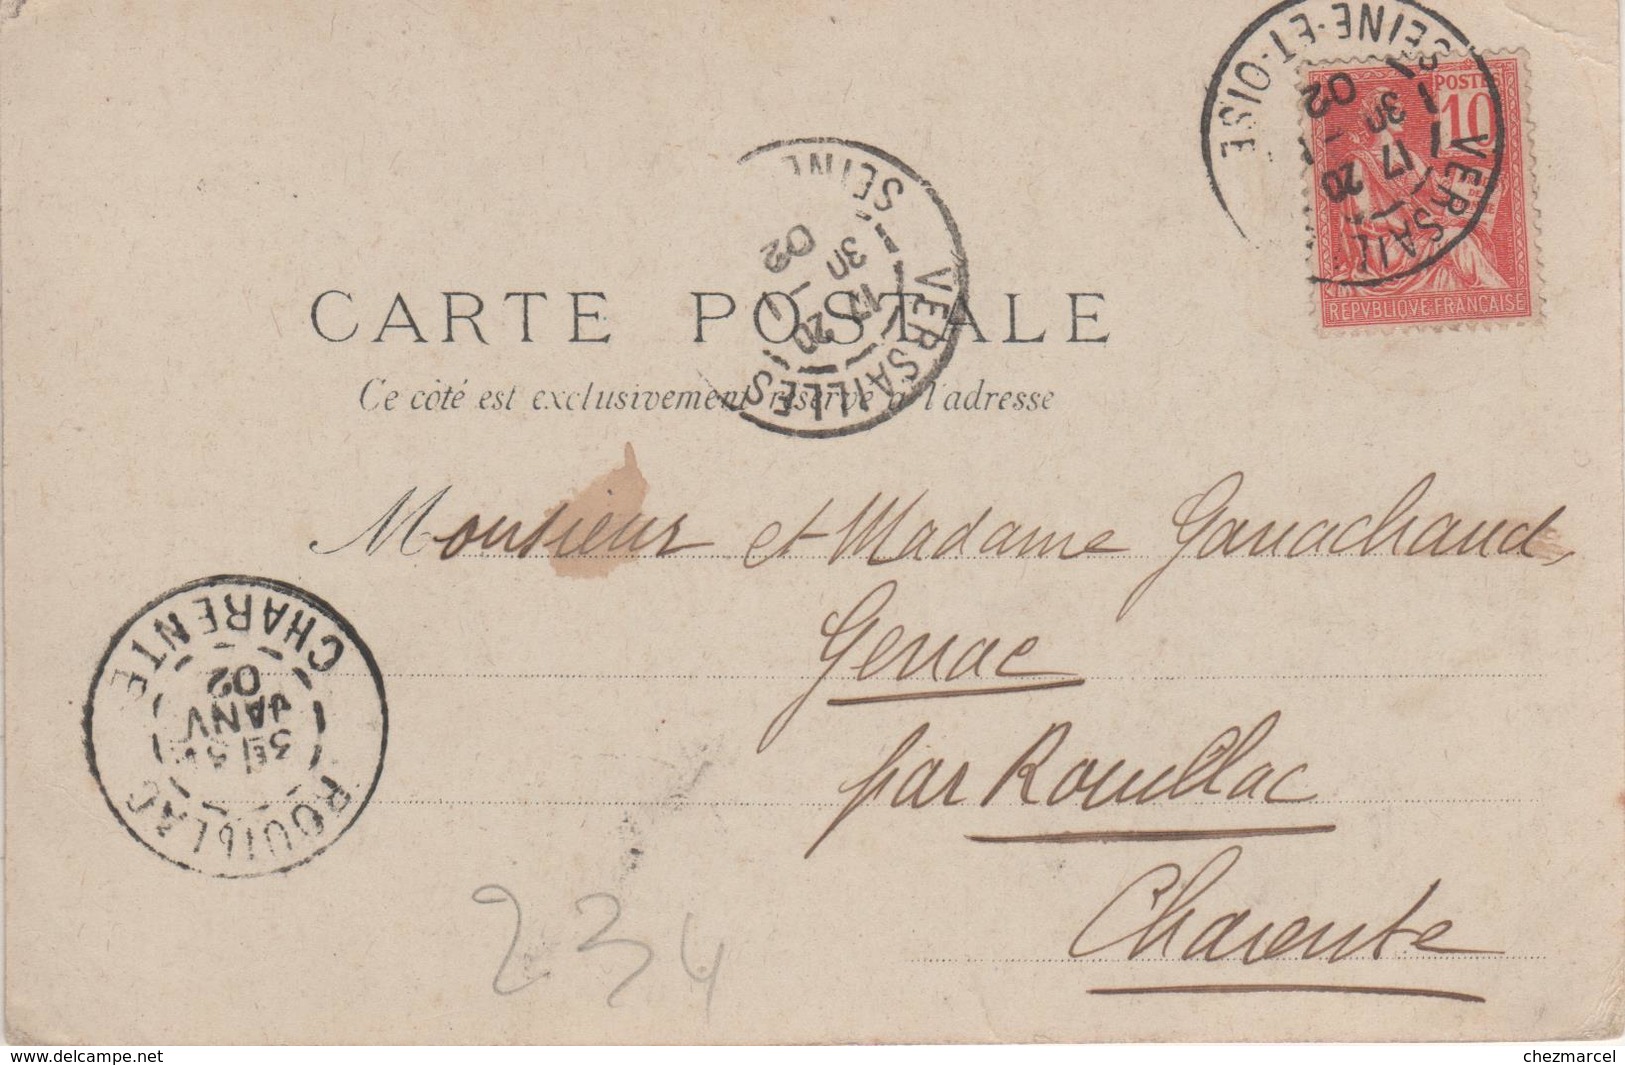 SEINE·ET·OISE
VERSAIL
17 3H
20 1
02
POSTES
10
REPVBLIQVE·FRANÇAISE
VERSAILLES
SEINE
17 3H
20 1
02
CARTE POSTALE
Ce côté est exclusivement réservé à l'adresse
Monsieur et Madame Ganachaud,
Genac
par Rouillac
Charente
ROUILLAC
JANV
02
CHARENTE
234
www.delcampe.net
chezmarcel